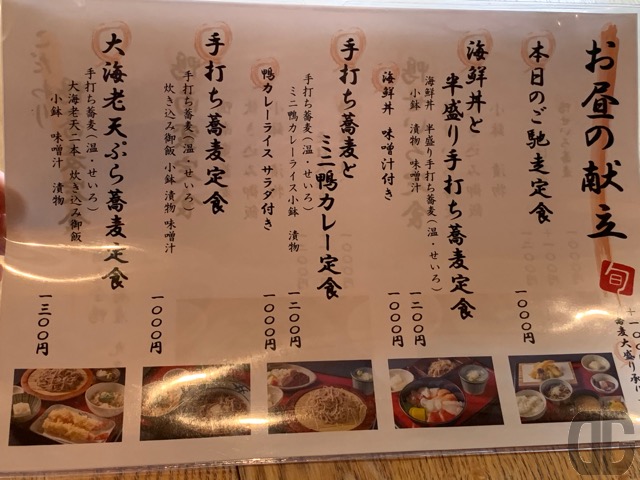 お昼の献立
旬
蕎麦大盛り
本日のご馳走定食
一〇〇〇円
海鮮丼と
半盛り手打ち蕎麦定食
海鮮丼 半盛り手打ち蕎麦(温・せいろ)
小鉢 漬物 味噌汁
一二〇〇円
海鮮丼 味噌汁付き
一〇〇〇円
手打ち蕎麦と
ミニ鴨カレー定食
手打ち蕎麦(温・せいろ)
ミニ鴨カレーライス 小鉢 漬物
一二〇〇円
鴨カレーライス サラダ付き
一〇〇〇円
手打ち蕎麦定食
手打ち蕎麦(温・せいろ)
炊き込み御飯 小鉢 漬物 味噌汁
一〇〇〇円
大海老天ぷら蕎麦定食
手打ち蕎麦(温・せいろ)
大海老天二本 炊き込み御飯
小鉢 味噌汁 漬物
一三〇〇円
DC